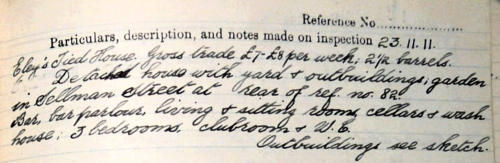 Reference No
Particulars, description, and notes made on inspection 23.11.11.
Eley's Tied House. Gross trade £7-£8 per week; 2½ barrels.
Detached house with yard & outbuildings; garden
in Sellman Street at rear of ref. no. 82.
Bar, bar parlour, living & sitting room, cellars & wash
house; 3 bedrooms, clubroom & W.C.
Outbuildings see sketch.